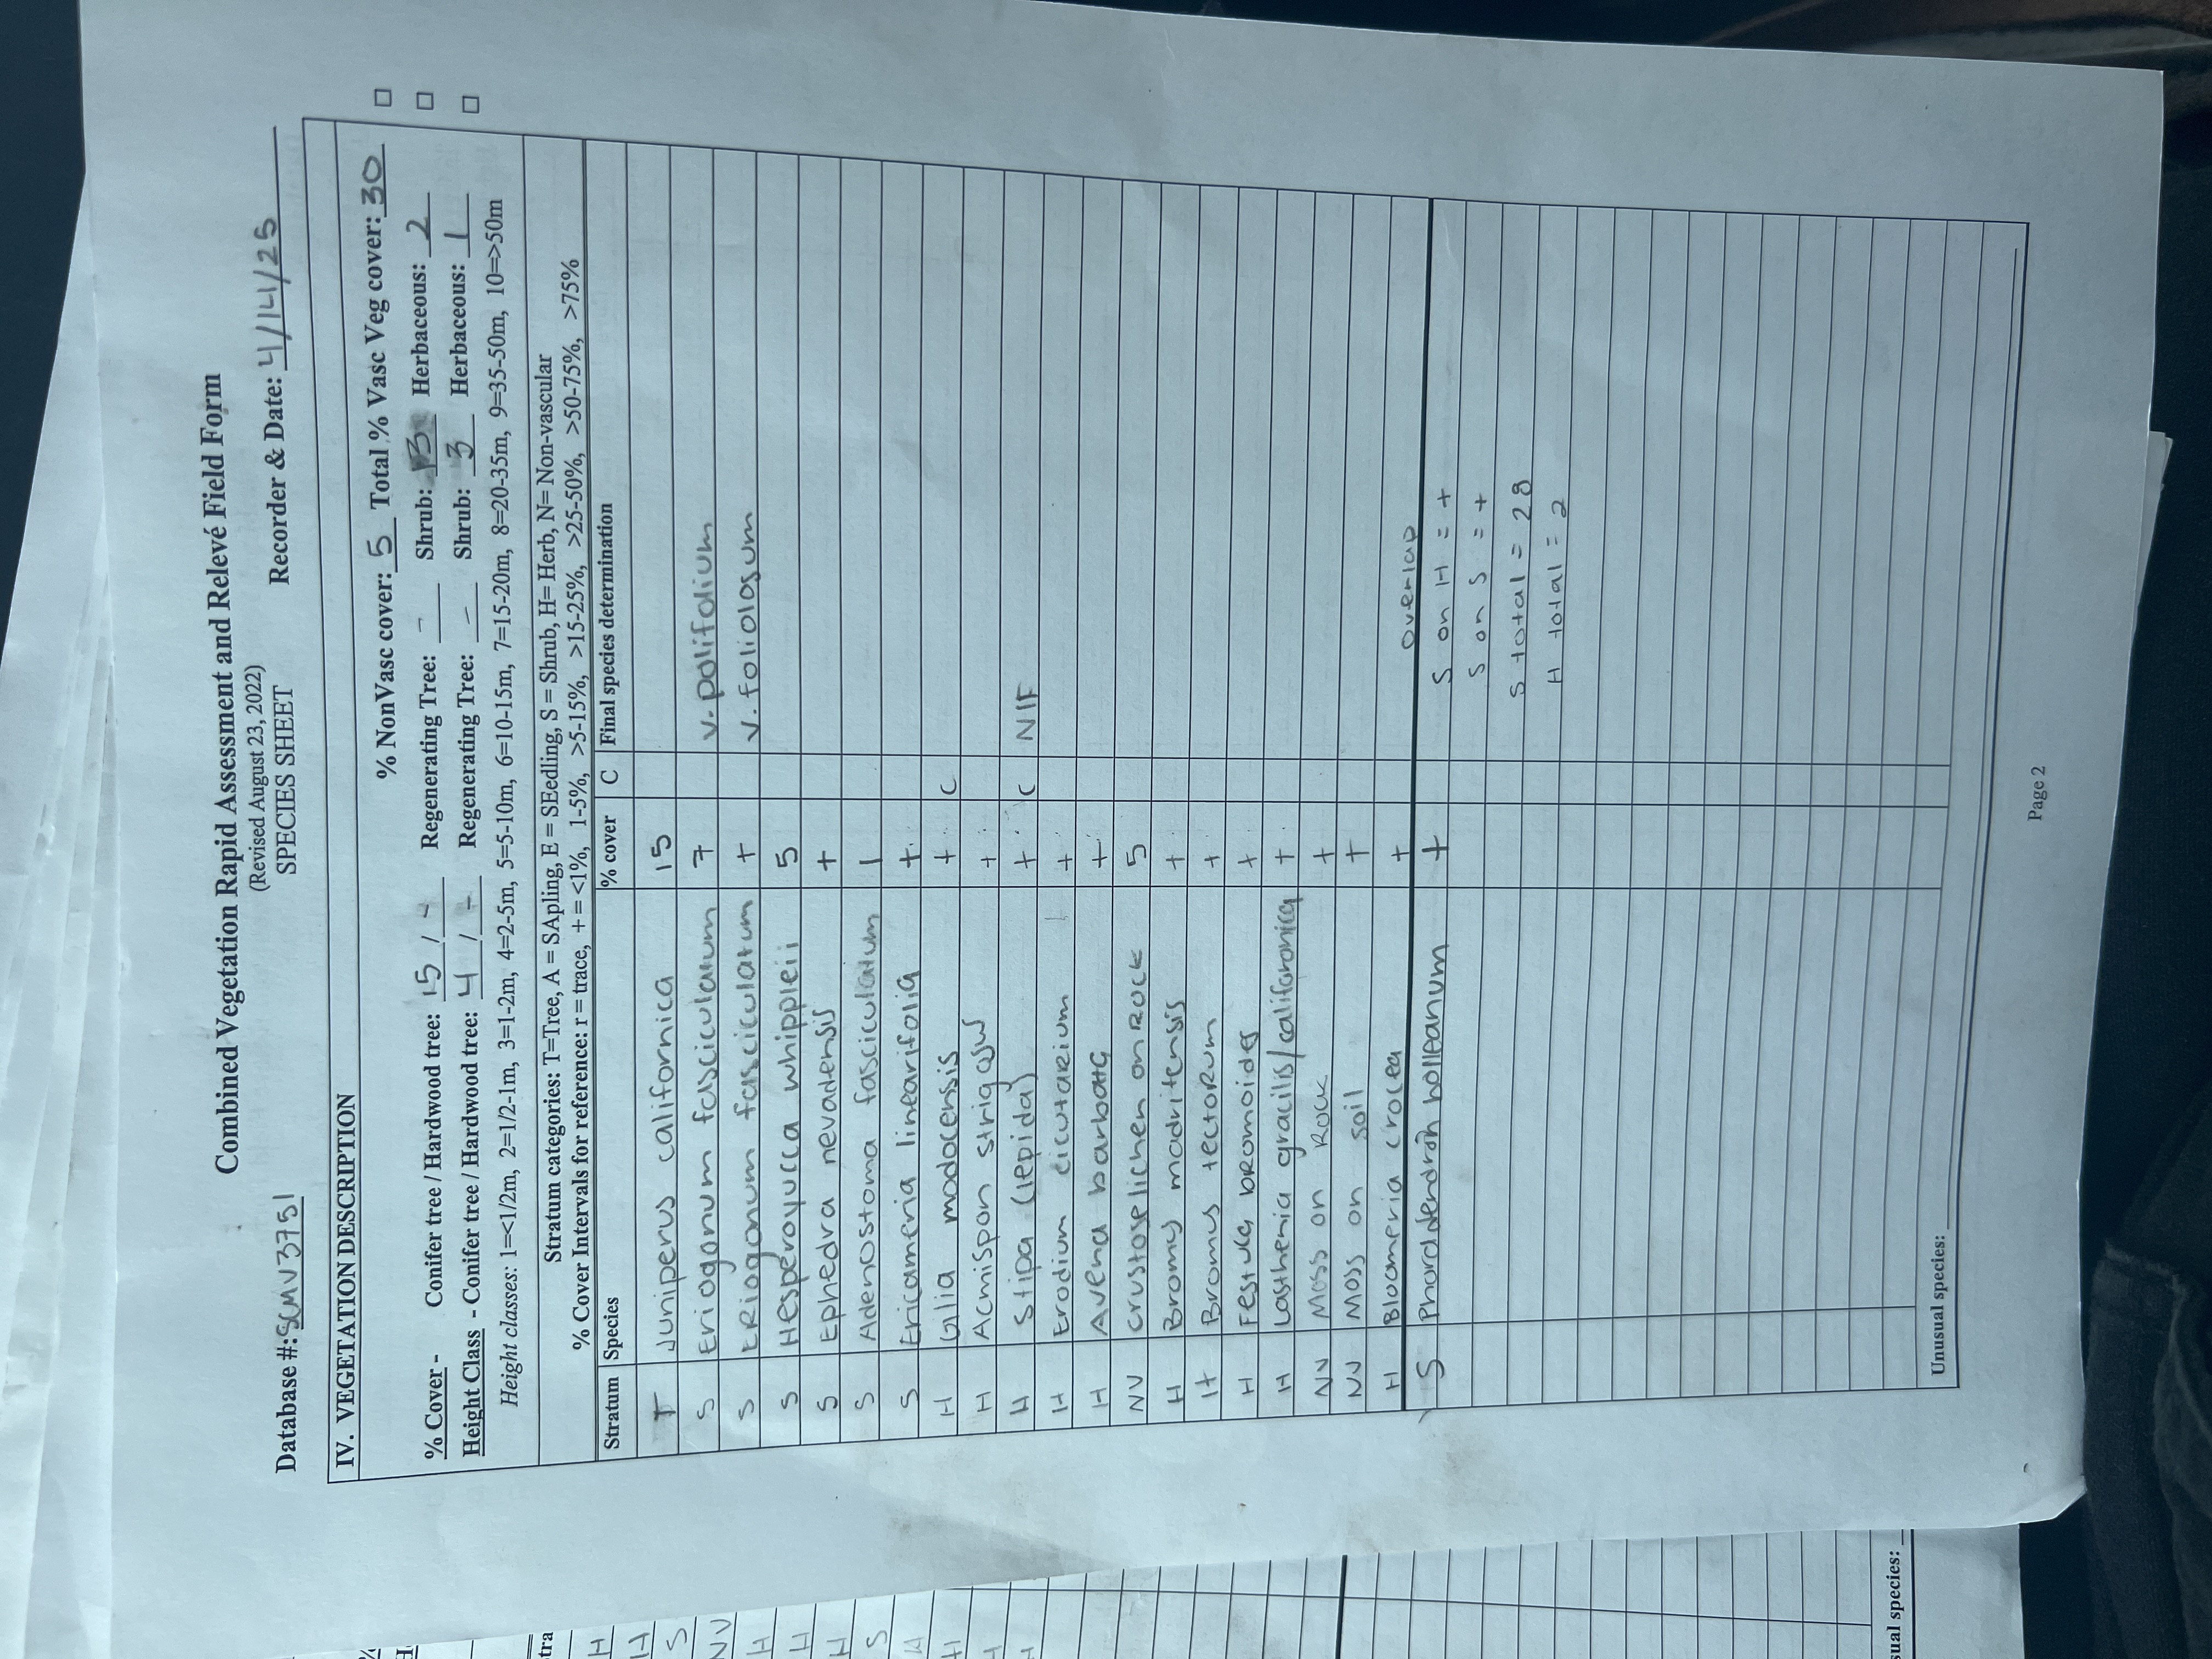 Combined Vegetation Rapid Assessment and Relevé Field Form
(Revised August 23, 2022)
SPECIES SHEET
Database #: SCMV3751 Recorder & Date: 4/14/25
IV. VEGETATION DESCRIPTION
% NonVasc cover: 5 Total % Vasc Veg cover: 30
% Cover - Conifer tree / Hardwood tree: 15 / - Regenerating Tree: - Shrub: 13 Herbaceous: 2
Height Class - Conifer tree / Hardwood tree: 4 / - Regenerating Tree: - Shrub: 3 Herbaceous: 1
Height classes: 1=<1/2m, 2=1/2-1m, 3=1-2m, 4=2-5m, 5=5-10m, 6=10-15m, 7=15-20m, 8=20-35m, 9=35-50m, 10=>50m
Stratum categories: T=Tree, A = SApling, E = SEedling, S = Shrub, H= Herb, N= Non-vascular
% Cover Intervals for reference: r = trace, + = <1%, 1-5%, >5-15%, >15-25%, >25-50%, >50-75%, >75%
Stratum Species % cover C Final species determination
T Juniperus californica 15
S Eriogonum fasciculatum 7 v. polifolium
S Eriogonum fasciculatum + v. foliolosum
S Hesperoyucca whipplei 5
S Ephedra nevadensis +
S Adenostoma fasciculatum 1
S Ericameria linearifolia +
H Gilia modocensis + C
H Acmispon strigosus +
H Stipa (lepida) + C NIF
H Erodium cicutarium +
H Avena barbata +
NV Crustose lichen on Rock 5
H Bromus madritensis +
H Bromus tectorum +
H Festuca bromoides +
H Lasthenia gracilis/californica +
NV Moss on Rock +
NV Moss on soil +
H Bloomeria crocea +
overlap
S Phoradendron bolleanum + S on H = +
S on S = +
S total = 28
H total = 2
Unusual species:
Page 2
tra
H
H
S
NV
H
H
H
S
H
H
H
H
sual species: